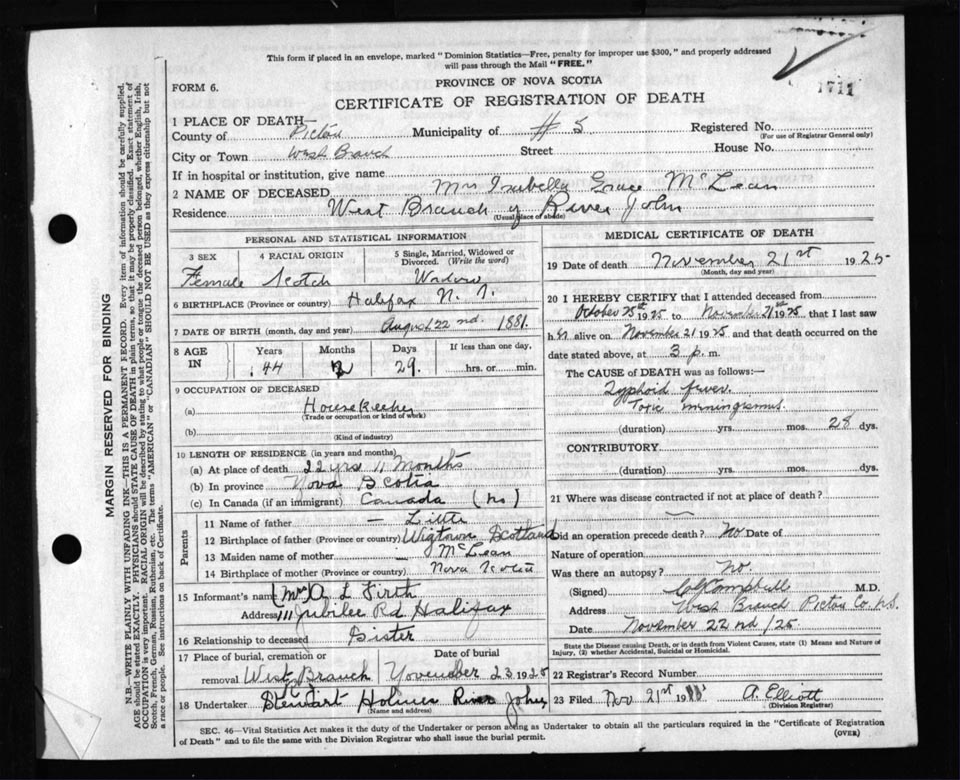 This form if placed in an envelope, marked "Dominion Statistics—Free, penalty for improper use $300," and properly addressed
will pass through the Mail "FREE."
1711
FORM 6.
PROVINCE OF NOVA SCOTIA
CERTIFICATE OF REGISTRATION OF DEATH
1 PLACE OF DEATH—
County of Pictou Municipality of # 5 Registered No.
(For use of Registrar General only)
City or Town West Branch Street House No.
If in hospital or institution, give name
2 NAME OF DECEASED Mrs Isabella Grace McLean
Residence West Branch of River John
(Usual place of abode)
PERSONAL AND STATISTICAL INFORMATION
3 SEX 4 RACIAL ORIGIN 5 Single, Married, Widowed or Divorced. (Write the word)
Female Scotch Widow
6 BIRTHPLACE (Province or country) Halifax N. S.
7 DATE OF BIRTH (month, day and year) August 22nd. 1881.
8 AGE IN Years Months Days If less than one day,
44 2 29. hrs. or min.
9 OCCUPATION OF DECEASED
(a) Housekeeper
(Trade or occupation or kind of work)
(b)
(Kind of industry)
10 LENGTH OF RESIDENCE (in years and months)
(a) At place of death 22 yrs 11 Months
(b) In province Nova Scotia
(c) In Canada (if an immigrant) Canada (no)
Parents
11 Name of father — Little
12 Birthplace of father (Province or country) Wigtown Scotland
13 Maiden name of mother McLean
14 Birthplace of mother (Province or country) Nova Scotia
15 Informant's name (Mrs) A L Firth
Address 111 Jubilee Rd Halifax
16 Relationship to deceased Sister
17 Place of burial, cremation or removal Date of burial
West Branch November 23 1925
18 Undertaker Stewart Holmes River John
(Name and address)
MEDICAL CERTIFICATE OF DEATH
19 Date of death November 21st 1925
(Month, day and year)
20 I HEREBY CERTIFY that I attended deceased from
October 25st 1925 to November 21st 1925 that I last saw
h er alive on November 21 1925 and that death occurred on
date stated above, at 3 p. m.
The CAUSE OF DEATH was as follows:—
Typhoid fever.
Toxic miningismus.
(duration) yrs. mos. 28 dys.
CONTRIBUTORY.
(duration) yrs. mos. dys.
21 Where was disease contracted if not at place of death?
Did an operation precede death? No Date of
Nature of operation
Was there an autopsy? No.
(Signed) Campbell M.D.
Address West Branch Pictou Co. N.S.
Date November 22nd /25.
State the Disease causing Death, or in death from Violent Causes, state (1) Means and Nature of
Injury, (2) whether Accidental, Suicidal or Homicidal.
22 Registrar's Record Number
23 Filed Nov 21st 19 A. Elliott
(Division Registrar)
SEC. 46—Vital Statistics Act makes it the duty of the Undertaker or person acting as Undertaker to obtain all the particulars required in the "Certificate of Registration
of Death" and to file the same with the Division Registrar who shall issue the burial permit.
(OVER)
MARGIN RESERVED FOR BINDING
N.B.—WRITE PLAINLY WITH UNFADING INK—THIS IS A PERMANENT RECORD. Every item of information should be carefully supplied.
AGE should be stated EXACTLY. PHYSICIANS should STATE CAUSE OF DEATH in plain terms, so that it may be properly classified. Exact statement of
OCCUPATION is very important. RACIAL ORIGIN will be described by stating to what people or tongue the deceased person belonged, whether English, Irish,
Scotch, French, German, Russian, Ruthenian, etc. The terms "AMERICAN" or "CANADIAN" SHOULD NOT BE USED as they express citizenship but not
a race or people. See instructions on back of Certificate.